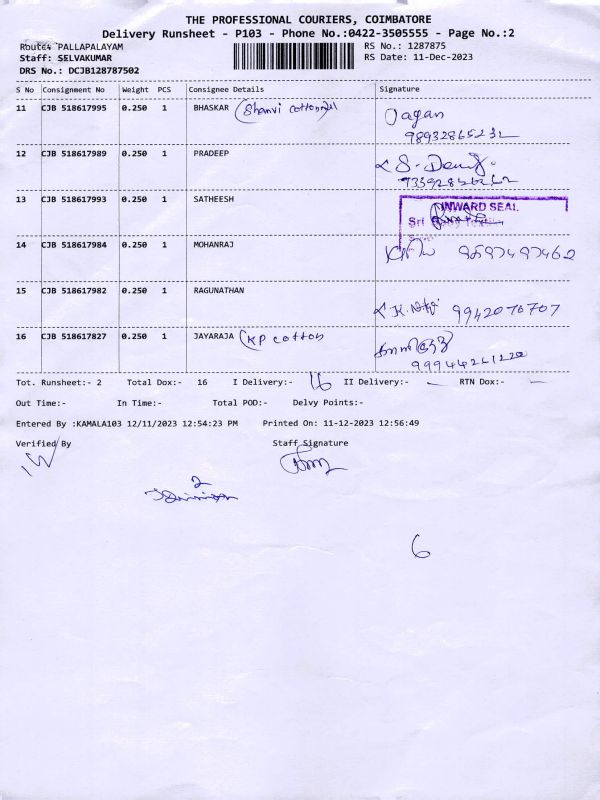 THE PROFESSIONAL COURIERS, COIMBATORE
Delivery Runsheet - P103 - Phone No.:0422-3505555 - Page No.:2
Route: PALLAPALAYAM RS No.: 1287875
Staff: SELVAKUMAR RS Date: 11-Dec-2023
DRS No.: DCJB128787502
S No Consignment No Weight PCS Consignee Details Signature
11 CJB 518617995 0.250 1 BHASKAR (Shanvi cotton Jagan
98932865232
12 CJB 518617989 0.250 1 PRADEEP
13 CJB 518617993 0.250 1 SATHEESH INWARD SEAL
Sri
14 CJB 518617984 0.250 1 MOHANRAJ 9597497462
15 CJB 518617982 0.250 1 RAGUNATHAN 9942070707
16 CJB 518617827 0.250 1 JAYARAJA (KP cotton
99944261220
Tot. Runsheet:- 2 Total Dox:- 16 I Delivery:- 16 II Delivery:- – RTN Dox:- –
Out Time:- In Time:- Total POD:- Delvy Points:-
Entered By :KAMALA103 12/11/2023 12:54:23 PM Printed On: 11-12-2023 12:56:49
Verified By Staff Signature
2
6